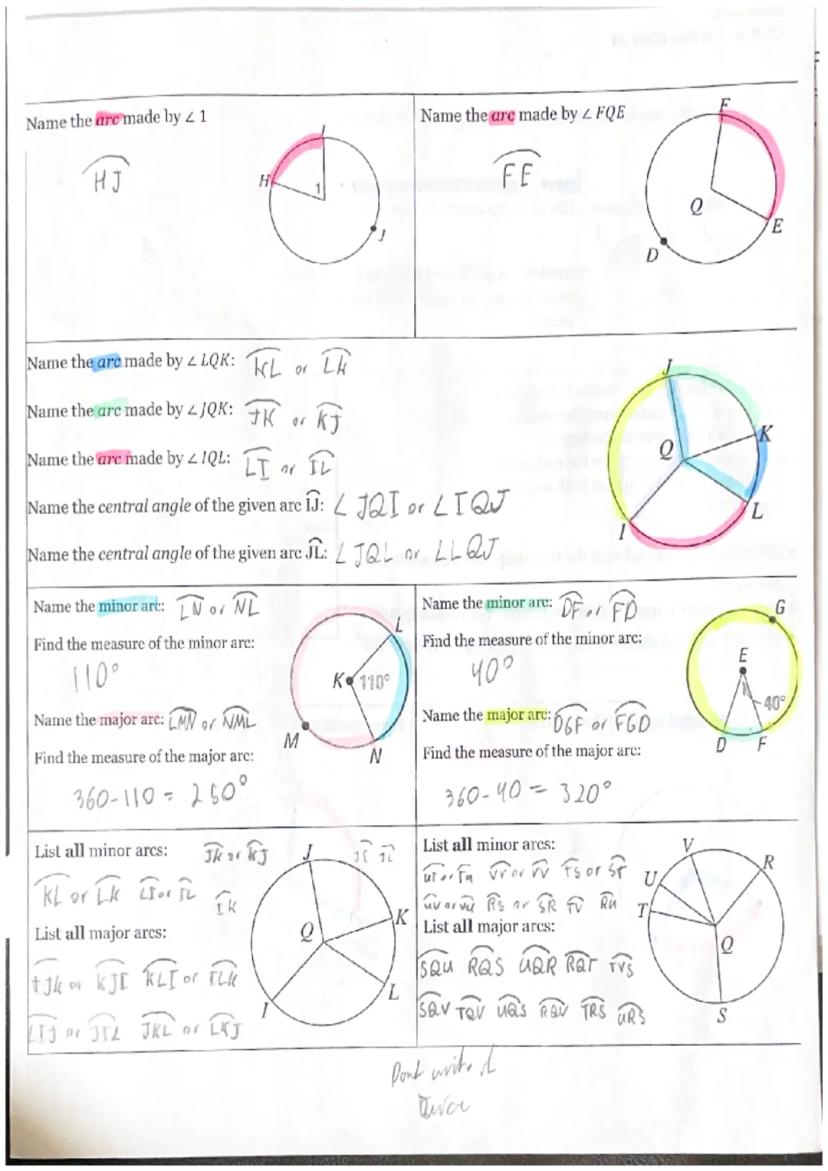 Name the arc made by ∠ 1
H͡J
H
I
1
J
Name the arc made by ∠ FQE
F͡E
F
Q
E
D
Name the arc made by ∠ LQK: K͡L or L͡K
Name the arc made by ∠ JQK: J͡K or K͡J
Name the arc made by ∠ IQL: L͡I or I͡L
Name the central angle of the given arc I͡J: ∠ JQI or ∠ IQJ
Name the central angle of the given arc J͡L: ∠ JQL or ∠ LQJ
J
Q
K
L
I
Name the minor arc: L͡N or N͡L
Find the measure of the minor arc:
110°
Name the major arc: L͡MN or N͡ML
Find the measure of the major arc:
360-110 = 250°
L
K 110°
M
N
Name the minor arc: D͡F or F͡D
Find the measure of the minor arc:
40°
Name the major arc: D͡GF or F͡GD
Find the measure of the major arc:
360-40 = 320°
G
E
40°
D F
List all minor arcs: J͡K or K͡J J͡I J͡L
K͡L or L͡K L͡I or I͡L I͡K
List all major arcs:
I͡JK or K͡JI K͡LI or I͡LK
L͡IJ or J͡IL J͡KL or L͡KJ
J
Q
K
L
I
List all minor arcs:
U͡T or T͡U V͡R or R͡V T͡S or S͡T
U͡V or V͡U R͡S or S͡R T͡V R͡U
List all major arcs:
S͡QU R͡QS U͡QR R͡QT T͡VS
S͡QV T͡QV U͡QS R͡QV T͡RS U͡RS
V
R
U
T
Q
S
Dont write it
twice